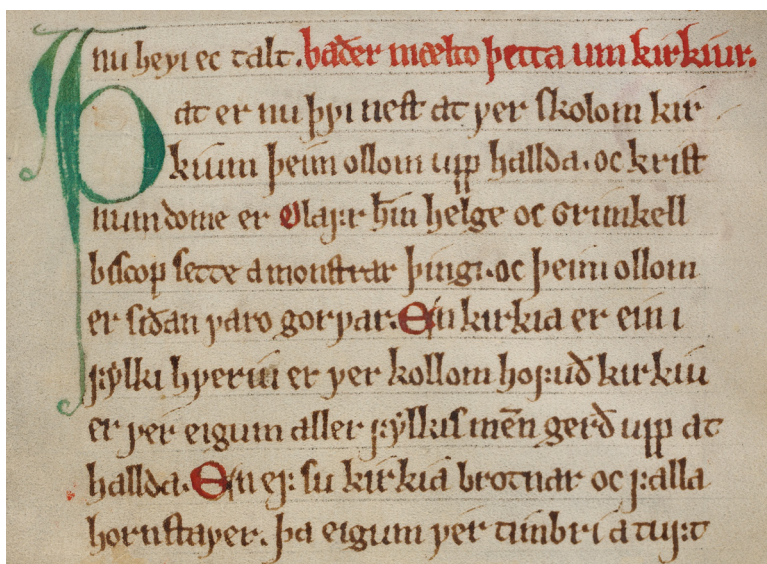 nu heꝩi ec talt. baðer mælto þetta um kirkiur.
Þat er nu þꝩi neſt at ꝩer ſkolom kir
kium þeim ollom upp hallda. oc kriſt
num dome er Olaꝼr h̅in helge oc Grimkell
biſcop ſette a monſtrar þingi. oc þeim ollom
er ſiðan ꝩaro gorꝩar. En kirkia er ein i
ꝼẏlki hꝩeriu er ꝩer kollom hoꝼuð kirkiu
er ꝩer eigum aller ꝼẏlkiſ men̅ gerð upp at
hallda. En eꝼ ſu kirkia brotnar oc ꝼalla
hornſtaꝩer. þa eigum ꝩer timbri a tuꝼt